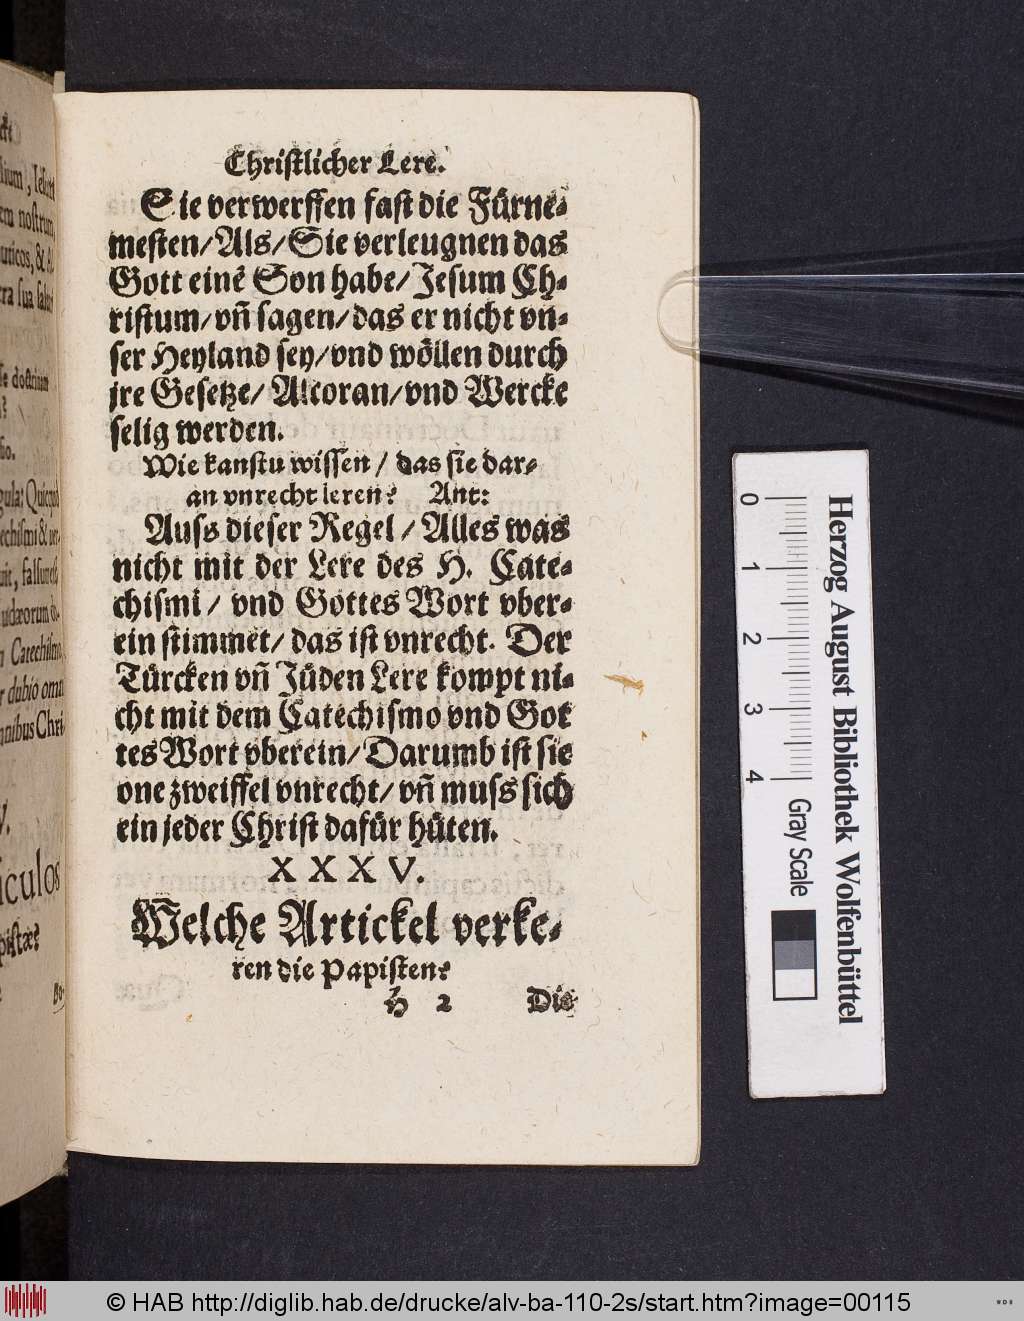 Christlicher Lere.
Sie verwerffen fast die Fürne-
mesten/Als/Sie verleugnen das
Gott einē Son habe/Jesum Ch-
ristum/vn̄ sagen/das er nicht vn-
ser Heyland sey/vnd wöllen durch
jre Gesetze/Alcoran/vnd Wercke
selig werden.
Wie kanstu wissen/das sie dar-
an vnrecht leren? Ant:
Auss dieser Regel/Alles was
nicht mit der Lere des H. Cate-
chismi/vnd Gottes Wort vber-
ein stimmet/das ist vnrecht. Der
Türcken vn̄ Jüden Lere kompt ni-
cht mit dem Catechismo vnd Got
tes Wort vberein/Darumb ist sie
one zweiffel vnrecht/vn̄ muss sich
ein jeder Christ dafür hüten.
XXXV.
Welche Artickel verke-
ren die Papisten?
H 2 Die
em nostrum
uricos, &
tra sua
doctrinam
Catechismo
dubio
nibus Chri
iculos
pistæ?
0 1 2 3 4 Gray Scale
Herzog August Bibliothek Wolfenbüttel
© HAB http://diglib.hab.de/drucke/alv-ba-110-2s/start.htm?image=00115